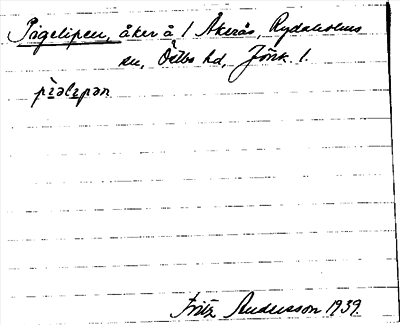 Pigelipen, åker å 1 Åkerås, Rydaholms
sn, Östbo hd, Jönk. l.
pìəlɪpən
Fritz Andersson 1939.